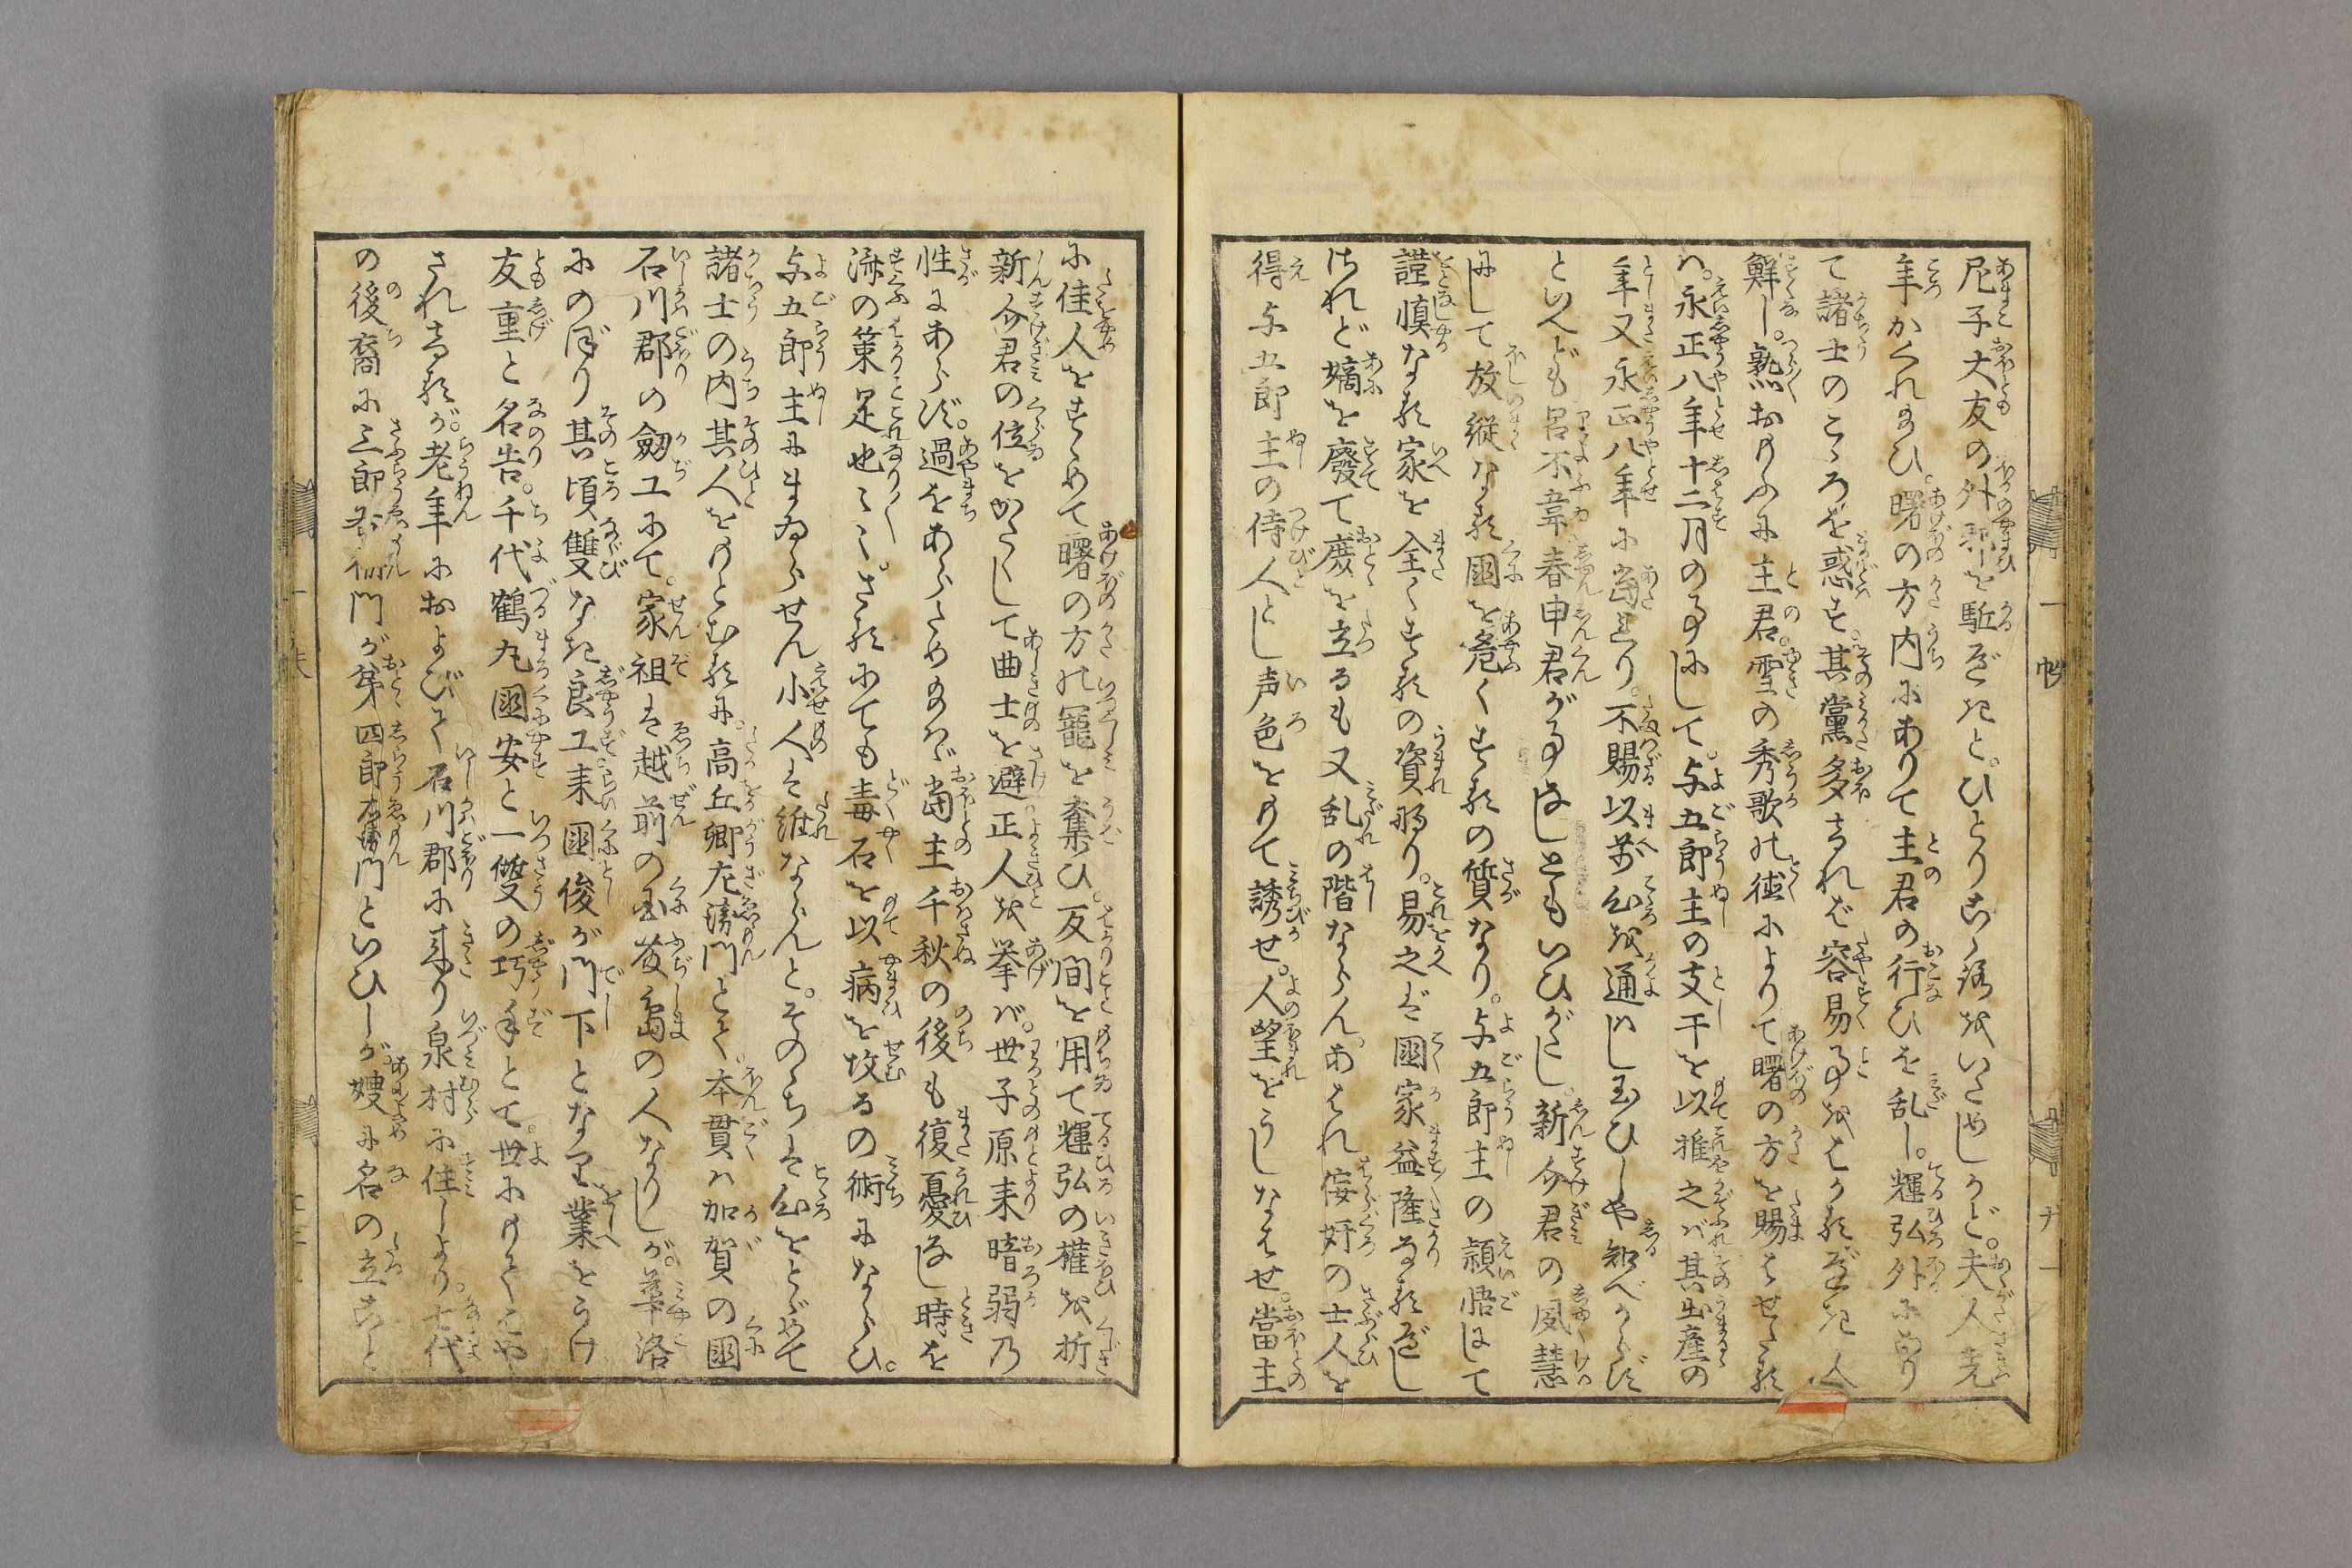 尼子大友の外邪を駈べきと。ひとりこゝろをいためしかど。夫人先
年かくれ玉ひ。曙の方内にありて主君の行ひを乱し。輝弘外にあり
て諸士のこゝろを惑す。其黨多ければ容易事をはかるべき人
鮮し。熟おもふに主君。雪の秀歌の徳によりて曙の方を賜はせたる
は。永正八年十二月の事にして。与五郎主の支干を以推之ば其出産の
年又永正八年に當れり。不賜以前心を通はし玉ひしや知べからず
といへども呂不韋春申君が事なしともいひがたし。新介君の夙慧
にして放縦なる国を危くするの質なり。与五郎主の穎悟にして
謹慎なる家を全くするの資あり。易之ば國家益隆なるべし
されど嫡を廢て庶を立るも又乱の階ならん。あはれ侫奸の士人を
得与五郎主の侍人とし声色をもて誘せ。人望をうしなはせ。當主
に佳人をすゝめて曙の方の寵を奪ひ。反間を用て輝弘の權を折
新介君の位をかたくして曲士を避正人を挙ば。世子原来暗弱乃
性にあらず。過をあらためのへば當主千秋の後も復憂なし時を
済の策足也〻。さるにても毒石を以病を攻るの術にならひ。
与五郎主にまゐらせん小人は誰ならんと。そのゝちは心をとゞめて
諸士の内其人をもとむるに。高丘卿左衛門とて。本貫は加賀の國
石川郡の劔工にて。家祖は越前の国敦島の人なりしが。華洛
にのぼり其頃雙なき良工来國俊が門下となり業をうけ
友重と名告。千代鶴丸國安と一雙の巧手とて。世にもてはや
されけるが。老年におよびて石川郡に来り泉村に住しより。七代
の後裔に三郎右衛門が弟四郎左衛門といひしが嫂に名の立こと